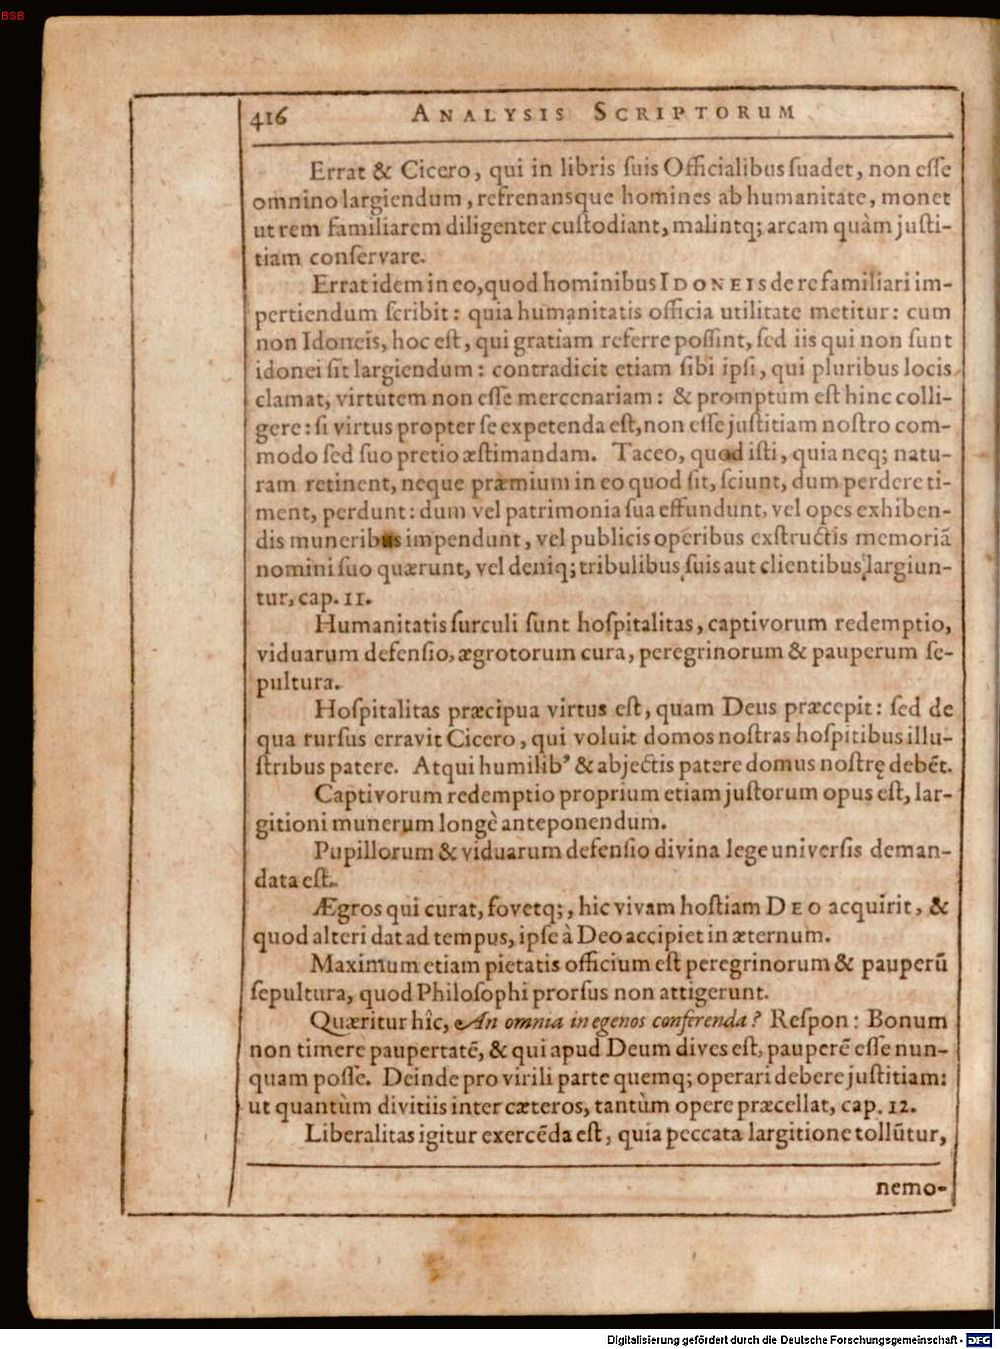 BSB
416 ANALYSIS SCRIPTORUM
Errat & Cicero, qui in libris ſuis Officialibus ſuadet, non eſſe
omnino largiendum, refrenansque homines ab humanitate, monet
ut rem familiarem diligenter cuſtodiant, malintq; arcam quàm juſti-
tiam conſervare.
Errat idem in eo, quod hominibus IDONEIS de re familiari im-
pertiendum ſcribit: quia humanitatis officia utilitate metitur: cum
non Idoneis, hoc eſt, qui gratiam referre poſſint, ſed iis qui non ſunt
idonei ſit largiendum: contradicit etiam ſibi ipſi, qui pluribus locis
clamat, virtutem non eſſe mercenariam: & promptum eſt hinc colli-
gere: ſi virtus propter ſe expetenda eſt, non eſſe juſtitiam noſtro com-
modo ſed ſuo pretio æſtimandam. Taceo, quod iſti, quia neq; natu-
ram retinent, neque præmium in eo quod ſit, ſciunt, dum perdere ti-
ment, perdunt: dum vel patrimonia ſua effundunt, vel opes exhiben-
dis muneribus impendunt, vel publicis operibus exſtructis memoriã
nomini ſuo quærunt, vel deniq; tribulibus ſuis aut clientibus largiun-
tur, cap. 11.
Humanitatis ſurculi ſunt hoſpitalitas, captivorum redemptio,
viduarum defenſio, ægrotorum cura, peregrinorum & pauperum ſe-
pultura.
Hoſpitalitas præcipua virtus eſt, quam Deus præcepit: ſed de
qua rurſus erravit Cicero, qui voluit domos noſtras hoſpitibus illu-
ſtribus patere. Atqui humilibꝰ & abjectis patere domus noſtrę debẽt.
Captivorum redemptio proprium etiam juſtorum opus eſt, lar-
gitioni munerum longè anteponendum.
Pupillorum & viduarum defenſio divina lege univerſis deman-
data eſt.
Ægros qui curat, fovetq;, hic vivam hoſtiam DEO acquirit, &
quod alteri dat ad tempus, ipſe à Deo accipiet in æternum.
Maximum etiam pietatis officium eſt peregrinorum & pauperũ
ſepultura, quod Philoſophi prorſus non attigerunt.
Quæritur hîc, An omnia in egenos conferenda? Reſpon: Bonum
non timere paupertatẽ, & qui apud Deum dives eſt, pauperẽ eſſe nun-
quam poſſe. Deinde pro virili parte quemq; operari debere juſtitiam:
ut quantùm divitiis inter cæteros, tantùm opere præcellat, cap. 12.
Liberalitas igitur exercẽda eſt, quia peccata largitione tollũtur,
nemo-
Digitalisierung gefördert durch die Deutsche Forschungsgemeinschaft - DFG